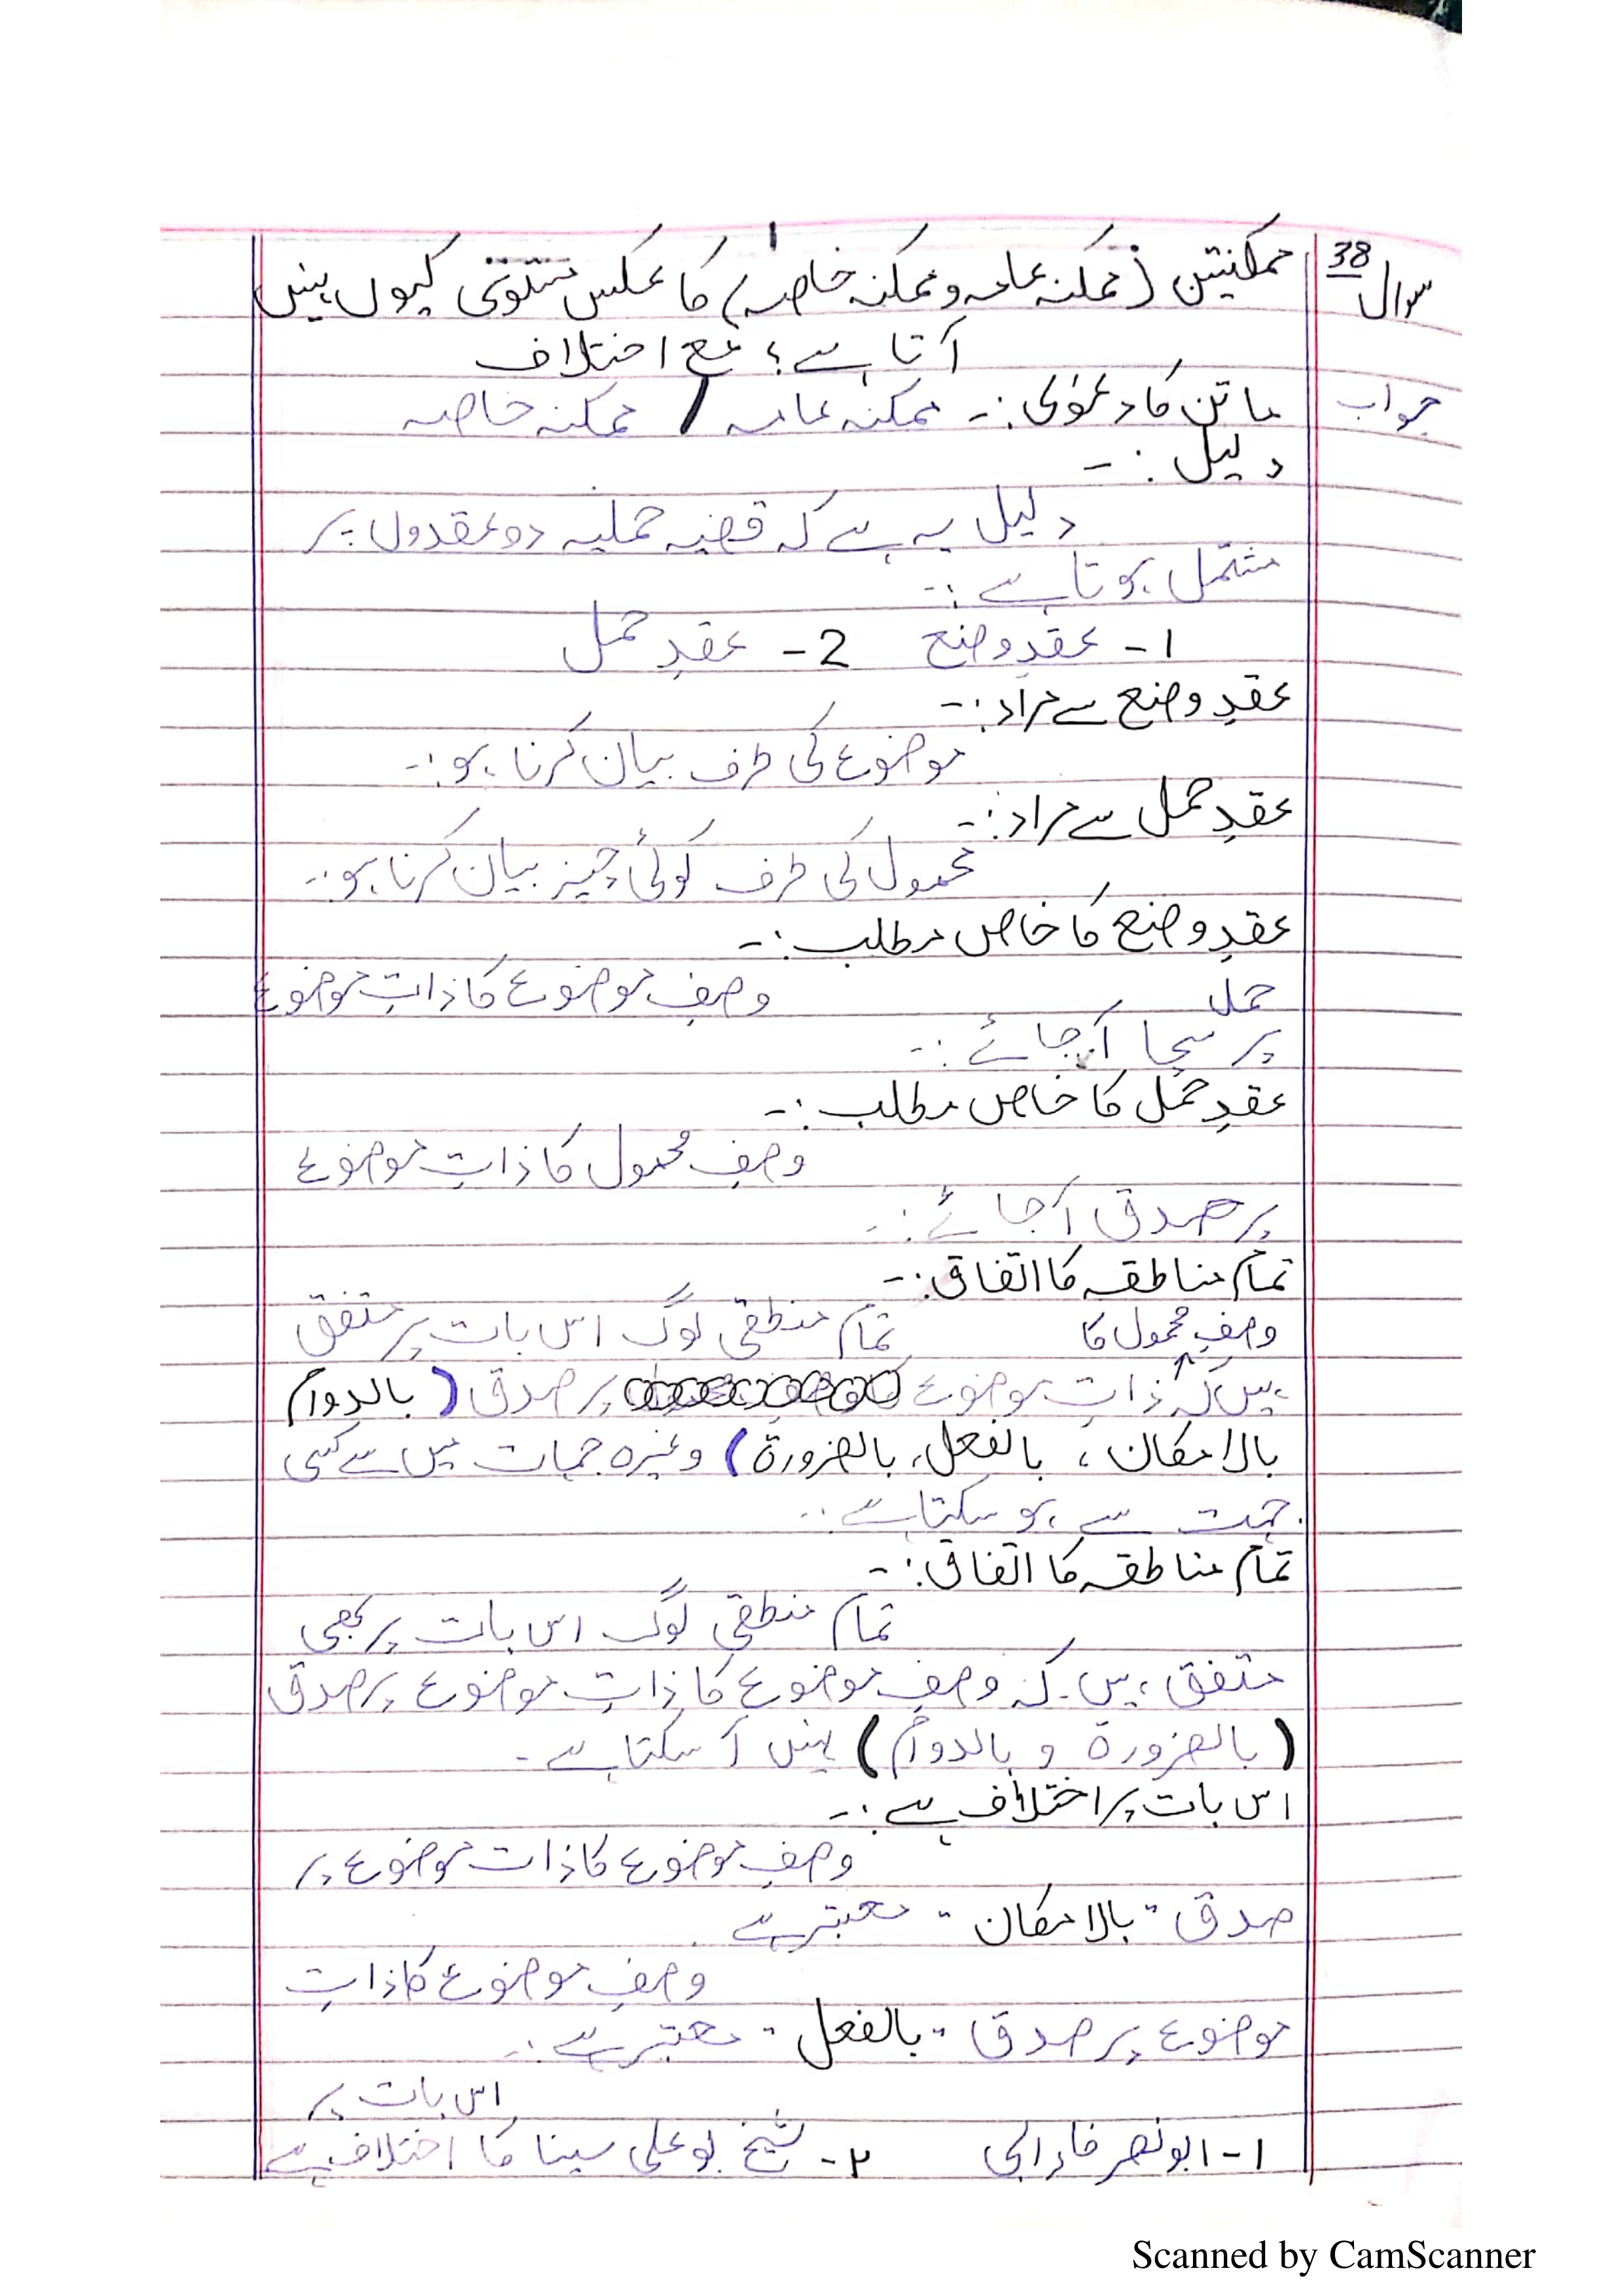 سوال 38 ممکنتین (ممکنہ عامہ و ممکنہ خاصہ) کا عکس مستوی کیوں نہیں
آتا ہے؟ مع اختلاف
جواب ماتن کا دعوٰی:۔ ممکنہ عامہ / ممکنہ خاصہ
دلیل:۔
دلیل یہ ہے کہ قضیہ حملیہ دو عقدوں پر
مشتمل ہوتا ہے:۔
1- عقدِ وضع 2- عقدِ حمل
عقدِ وضع سے مراد:۔
موضوع کی طرف بیان کرنا ہو:۔
عقدِ حمل سے مراد:۔
محمول کی طرف کوئی چیز بیان کرنا ہو:۔
عقدِ وضع کا خاص مطلب:۔
وصفِ موضوع کا ذاتِ موضوع
حمل
پر سچا آ جائے:۔
عقدِ حمل کا خاص مطلب:۔
وصفِ محمول کا ذاتِ موضوع
پر صدق آجائے:۔
تمام مناطقہ کا اتفاق:۔
تمام منطقی لوگ اس بات پر متفق
وصفِ محمول کا
ہیں کہ ذاتِ موضوع پر صدق (بالدوام
بالامکان، بالفعل، بالضرورۃ) وغیرہ جہات میں سے کسی
جہت سے ہو سکتا ہے:۔
تمام مناطقہ کا اتفاق:۔
تمام منطقی لوگ اس بات پر بھی
متفق ہیں۔ کہ وصفِ موضوع کا ذاتِ موضوع پر صدق
(بالضرورۃ و بالدوام) نہیں آ سکتا ہے۔
اس بات پر اختلاف ہے:۔
وصفِ موضوع کا ذات موضوع پر
صدق "بالامکان" معتبر ہے
وصفِ موضوع کا ذاتِ
موضوع پر صدق "بالفعل" معتبر ہے:۔
اس بات پر
۱- ابو نصر فارابی ۲- شیخ بو علی سینا کا اختلاف ہے
Scanned by CamScanner